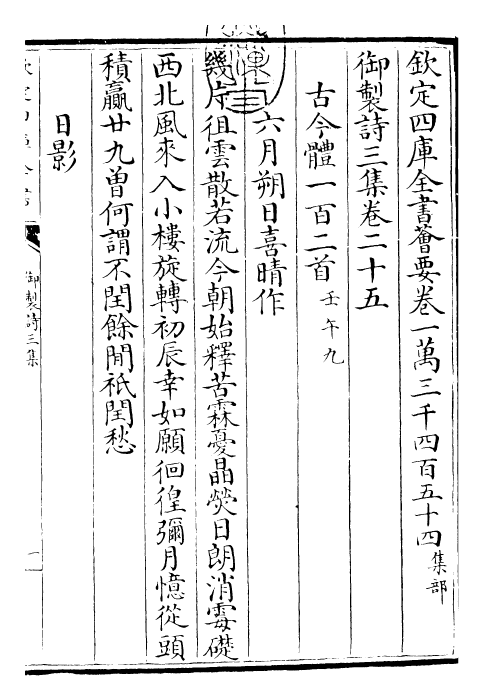 欽定四庫全書薈要卷一萬三千四百五十四集部
御製詩三集卷二十五
古今體一百二首壬午九
六月朔日喜晴作
幾片徂雲散若流今朝始釋苦霖憂晶熒日朗消霉礎
西北風來入小樓旋轉初辰幸如願徊徨彌月憶從頭
積贏廿九曾何謂不閏餘閒祇閏愁
日影
御製詩三集
一